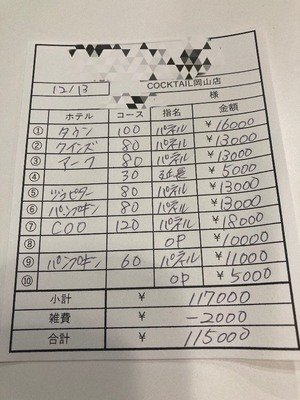 COCKTAIL岡山店
12/13
様
ホテル コース 指名 金額
① タウン 100 パネル ¥16000
② クイーンズ 80 パネル ¥13000
③ マーク 80 パネル ¥13000
④ 30 延長 ¥5000
⑤ ジュピター 80 パネル ¥13000
⑥ パンプキン 80 パネル ¥13000
⑦ COO 120 パネル ¥18000
⑧ OP ¥10000
⑨ パンプキン 60 パネル ¥11000
⑩ OP ¥5000
小計 ¥ 117000
雑費 ¥ -2000
合計 ¥ 115000